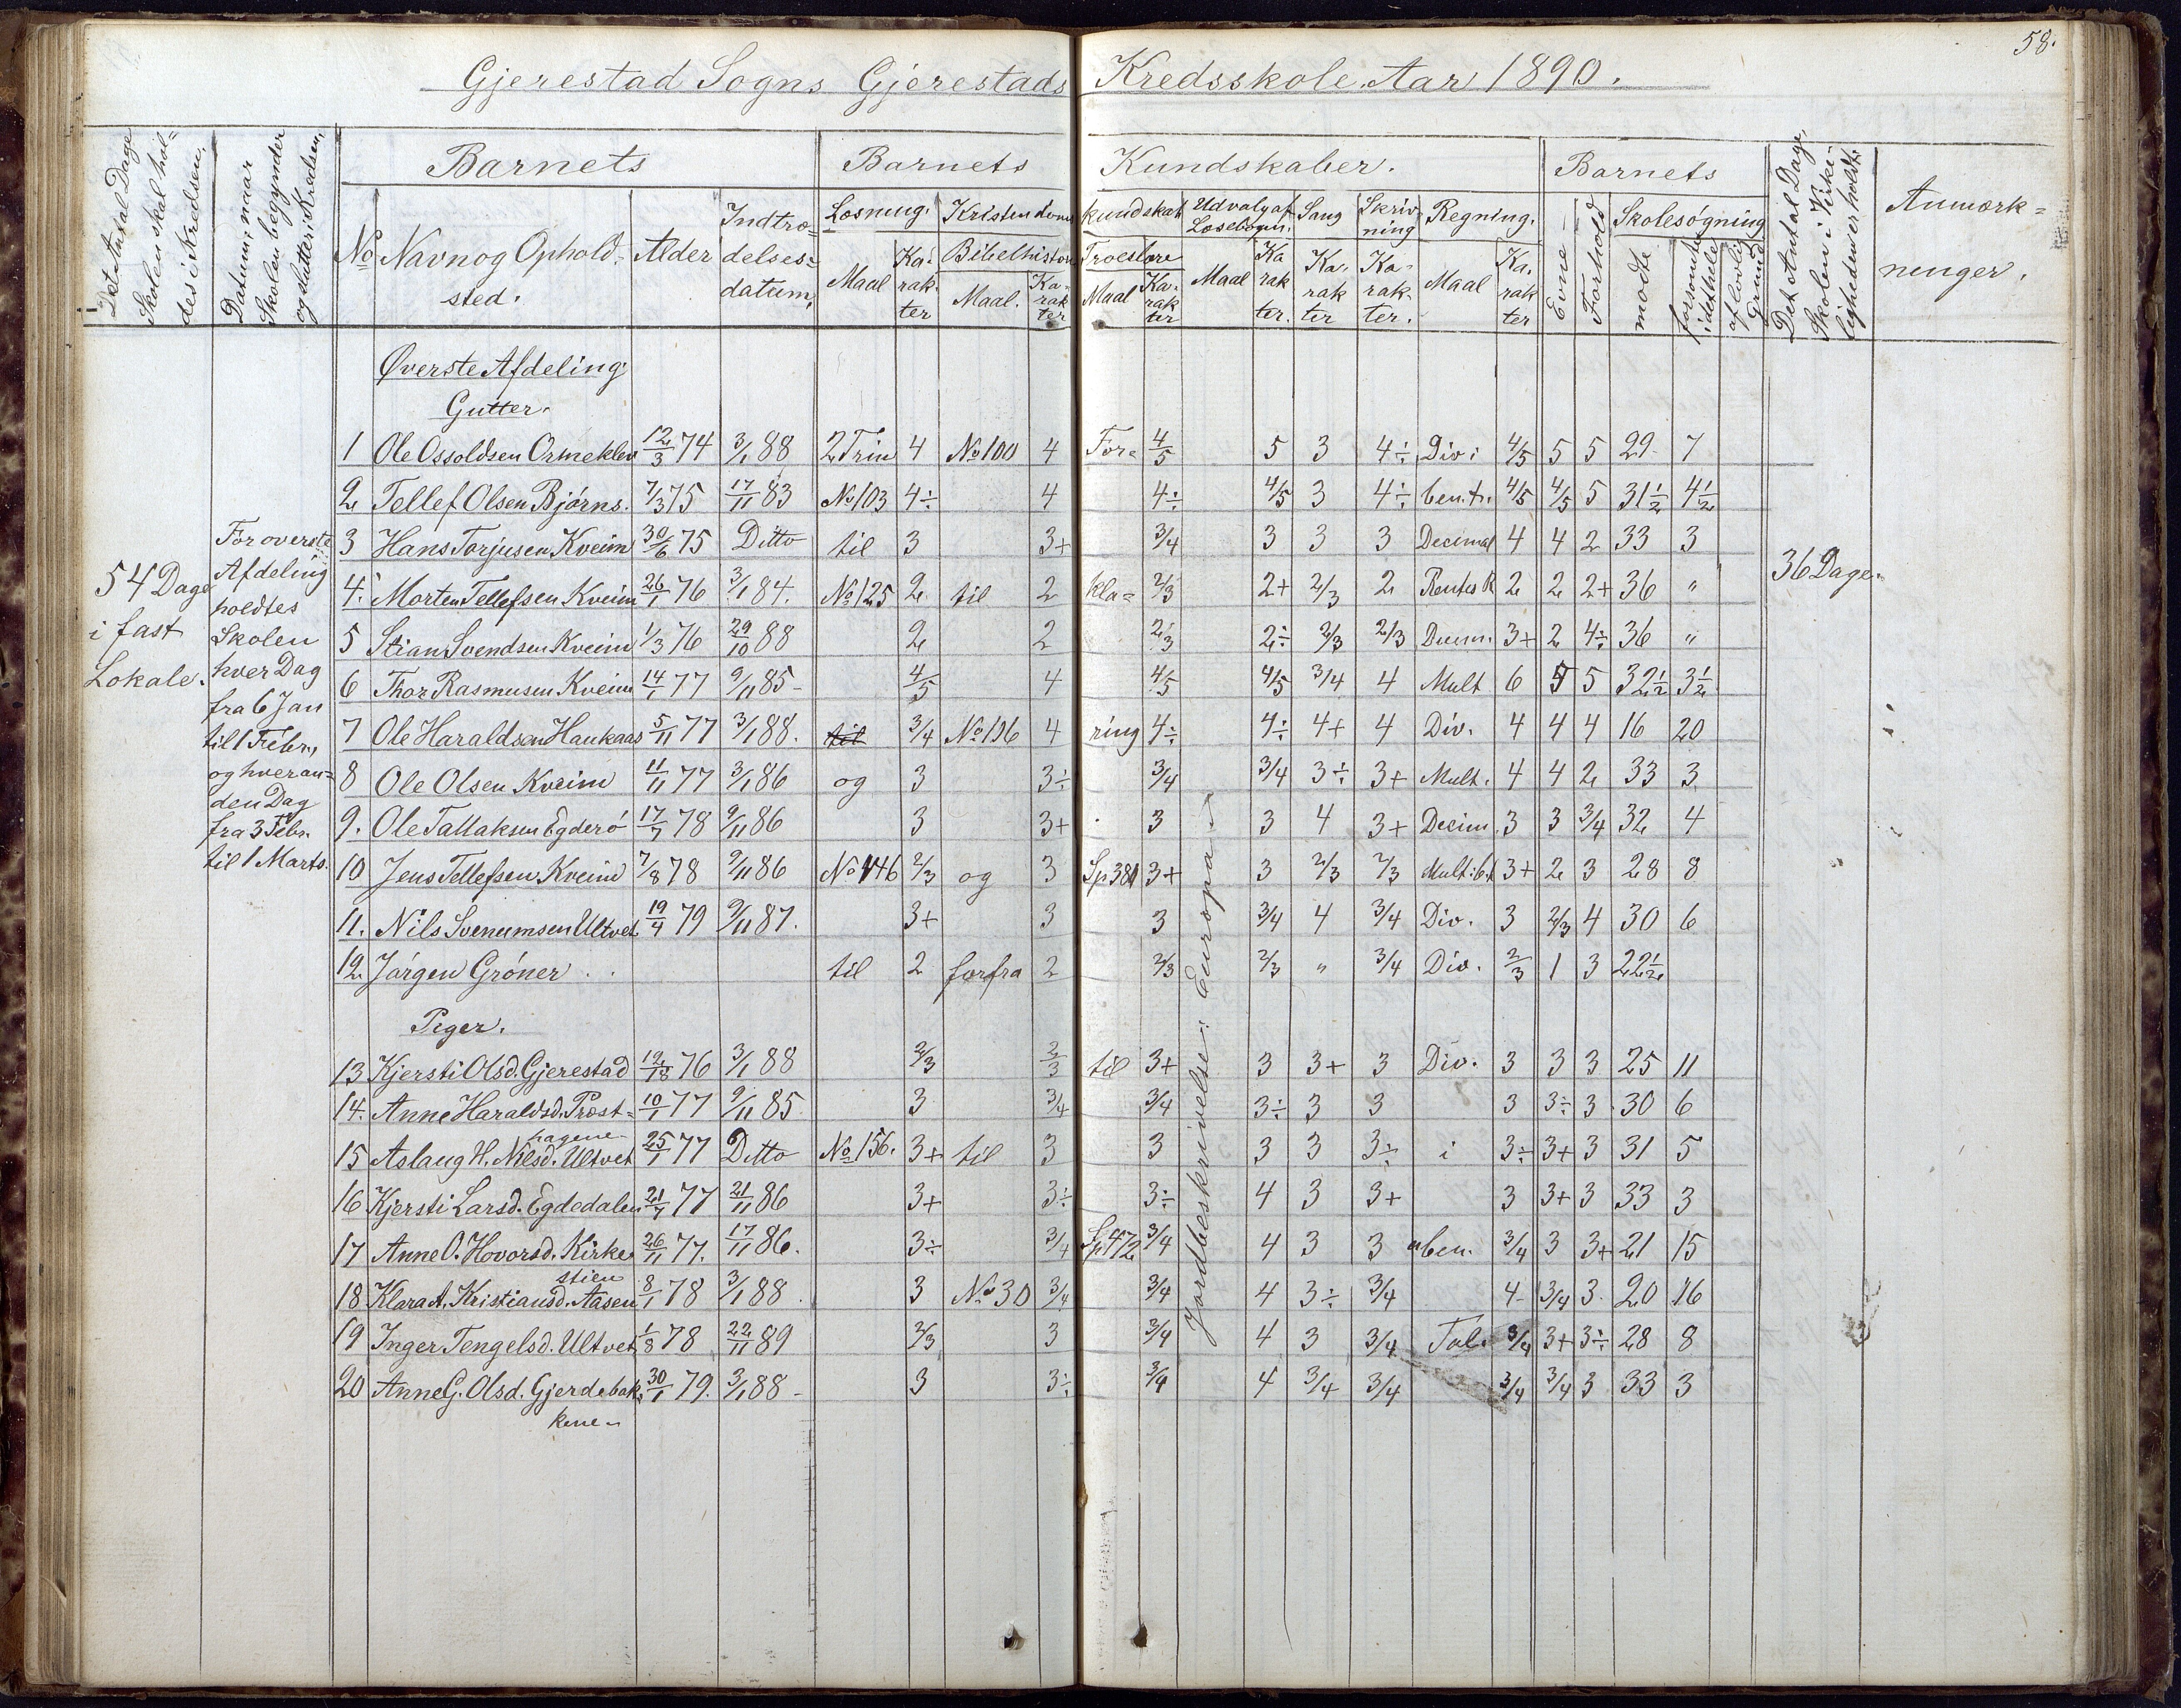 58.
Gjerestad Sogns Gjerestads Kredsskole. Aar 1890.
Det Antal Dage Skolen skal holdes i Kredsen.
Datum, naar Skolen begynder og slutter i Kredsen.
Barnets
Barnets Kundskaber.
Barnets
Det Antal Dage, Skolen i Virkeligheden er holdt.
Anmærkninger.
No Navn og Opholdssted. Alder Indtrædelsesdatum.
Læsning. Maal Karakter
Kristendomskundskab
Bibelhistorie Maal. Karakter
Troeslære Maal Karakter
Udvalg af Læsebogen. Maal Karakter.
Sang Karakter
Skrivning Karakter.
Regning. Maal Karakter
Evne
Forhold
Skolesøgning
mødte
forsømte i det hele
af lovlig Grund
54 Dage
i fast
Lokale.
For øverste
Afdeling
holdtes
Skolen
hver Dag
fra 6 Jan
til 1 Febr.,
og hveran-
den Dag
fra 3 Febr.
til 1 Marts.
36 Dage.
Jordbeskrivelse: Europa
Øverste Afdeling.
Gutter.
1 Ole Ossoldsen Ormeklev 12/3 74 3/1 88 2 Trin 4 No 100 4 For= 4/5 5 3 4÷ Div: 4/5 5 5 29 7
2 Tellef Olsen Bjørns. 7/3 75 17/11 83 No 103 4÷ 4 4÷ 4/5 3 4÷ ben.t. 4/5 4/5 5 31 1/2 4 1/2
3 Hans Torjusen Kveim 30/6 75 Ditto til 3 3+ 3/4 3 3 3 Decimal 4 4 2 33 3
4. Morten Tellefsen Kveim 26/1 76 3/1 84. No 125 2 til 2 kla= 2/3 2+ 2/3 2 Rentes R 2 2 2+ 36 "
5 Stian Svendsen Kveim 1/3 76 29/10 88 2 2 2/3 2÷ 2/3 2/3 Decim. 3+ 2 4÷ 36 "
6 Thor Rasmusen Kveim 14/1 77 9/11 85 4/5 4 4/5 4/5 3/4 4 Mult 6 5 5 32 1/2 3 1/2
7 Ole Haraldsen Haukaas 5/11 77 3/1 88. til 3/4 No 196 4 ring 4÷ 4÷ 4+ 4 Div. 4 4 4 16 20
8 Ole Olsen Kveim 11/11 77 3/1 86 og 3 3÷ 3/4 3/4 3÷ 3+ Mult. 4 4 2 33 3
9. Ole Tallaksen Egderö 17/7 78 9/11 86 3 3+ 3 3 4 3+ Decim. 3 3 3/4 32 4
10 Jens Tellefsen Kveim 7/8 78 9/11 86 No 146 2/3 og 3 Sp 381 3+ 3 2/3 2/3 Mult: b.t 3+ 2 3 28 8
11. Nils Svenumsen Ultvet 19/4 79 9/11 87. 3+ 3 3 3/4 4 3/4 Div. 3 2/3 4 30 6
12. Jørgen Grøner til 2 forfra 2 2/3 2/3 " 3/4 Div. 2/3 1 3 22 1/2
Piger.
13 Kjersti Olsd. Gjerestad 12/18 76 3/1 88 2/3 2/3 til 3+ 3 3+ 3 Div. 3 3 3 25 11
14. Anne Haraldsd. Præst= hagene 10/1 77 9/11 85 3 3/4 3/4 3÷ 3 3 3 3÷ 3 30 6
15 Aslaug H. Nilsd. Ultvet 25/1 77 Ditto No 156. 3+ til 3 3 3 3 3÷ i 3÷ 3+ 3 31 5
16 Kjersti Larsd. Egdedalen 21/7 77 21/11 86 3+ 3÷ 3÷ 4 3 3+ 3 3+ 3 33 3
17 Anne O. Hovorsd. Kirke= stien 26/11 77. 17/11 86. 3÷ 3/4 Sp 472 3/4 4 3 3 uben. 3/4 3 3+ 21 15
18 Klara A. Kristiansd. Aasen 8/1 78 3/1 88 3 No 30 3/4 3/4 4 3÷ 3/4 4 3/4 3 20 16
19 Inger Tengelsd. Ultvet 1/8 78 22/11 89 2/3 3 3/4 4 3 3/4 Tal. 3/4 3+ 3÷ 28 8
20 Anne G. Olsd. Gjerdebak= kene 30/1 79. 3/1 88 3 3÷ 3/4 4 3/4 3/4 3/4 3/4 3 33 3